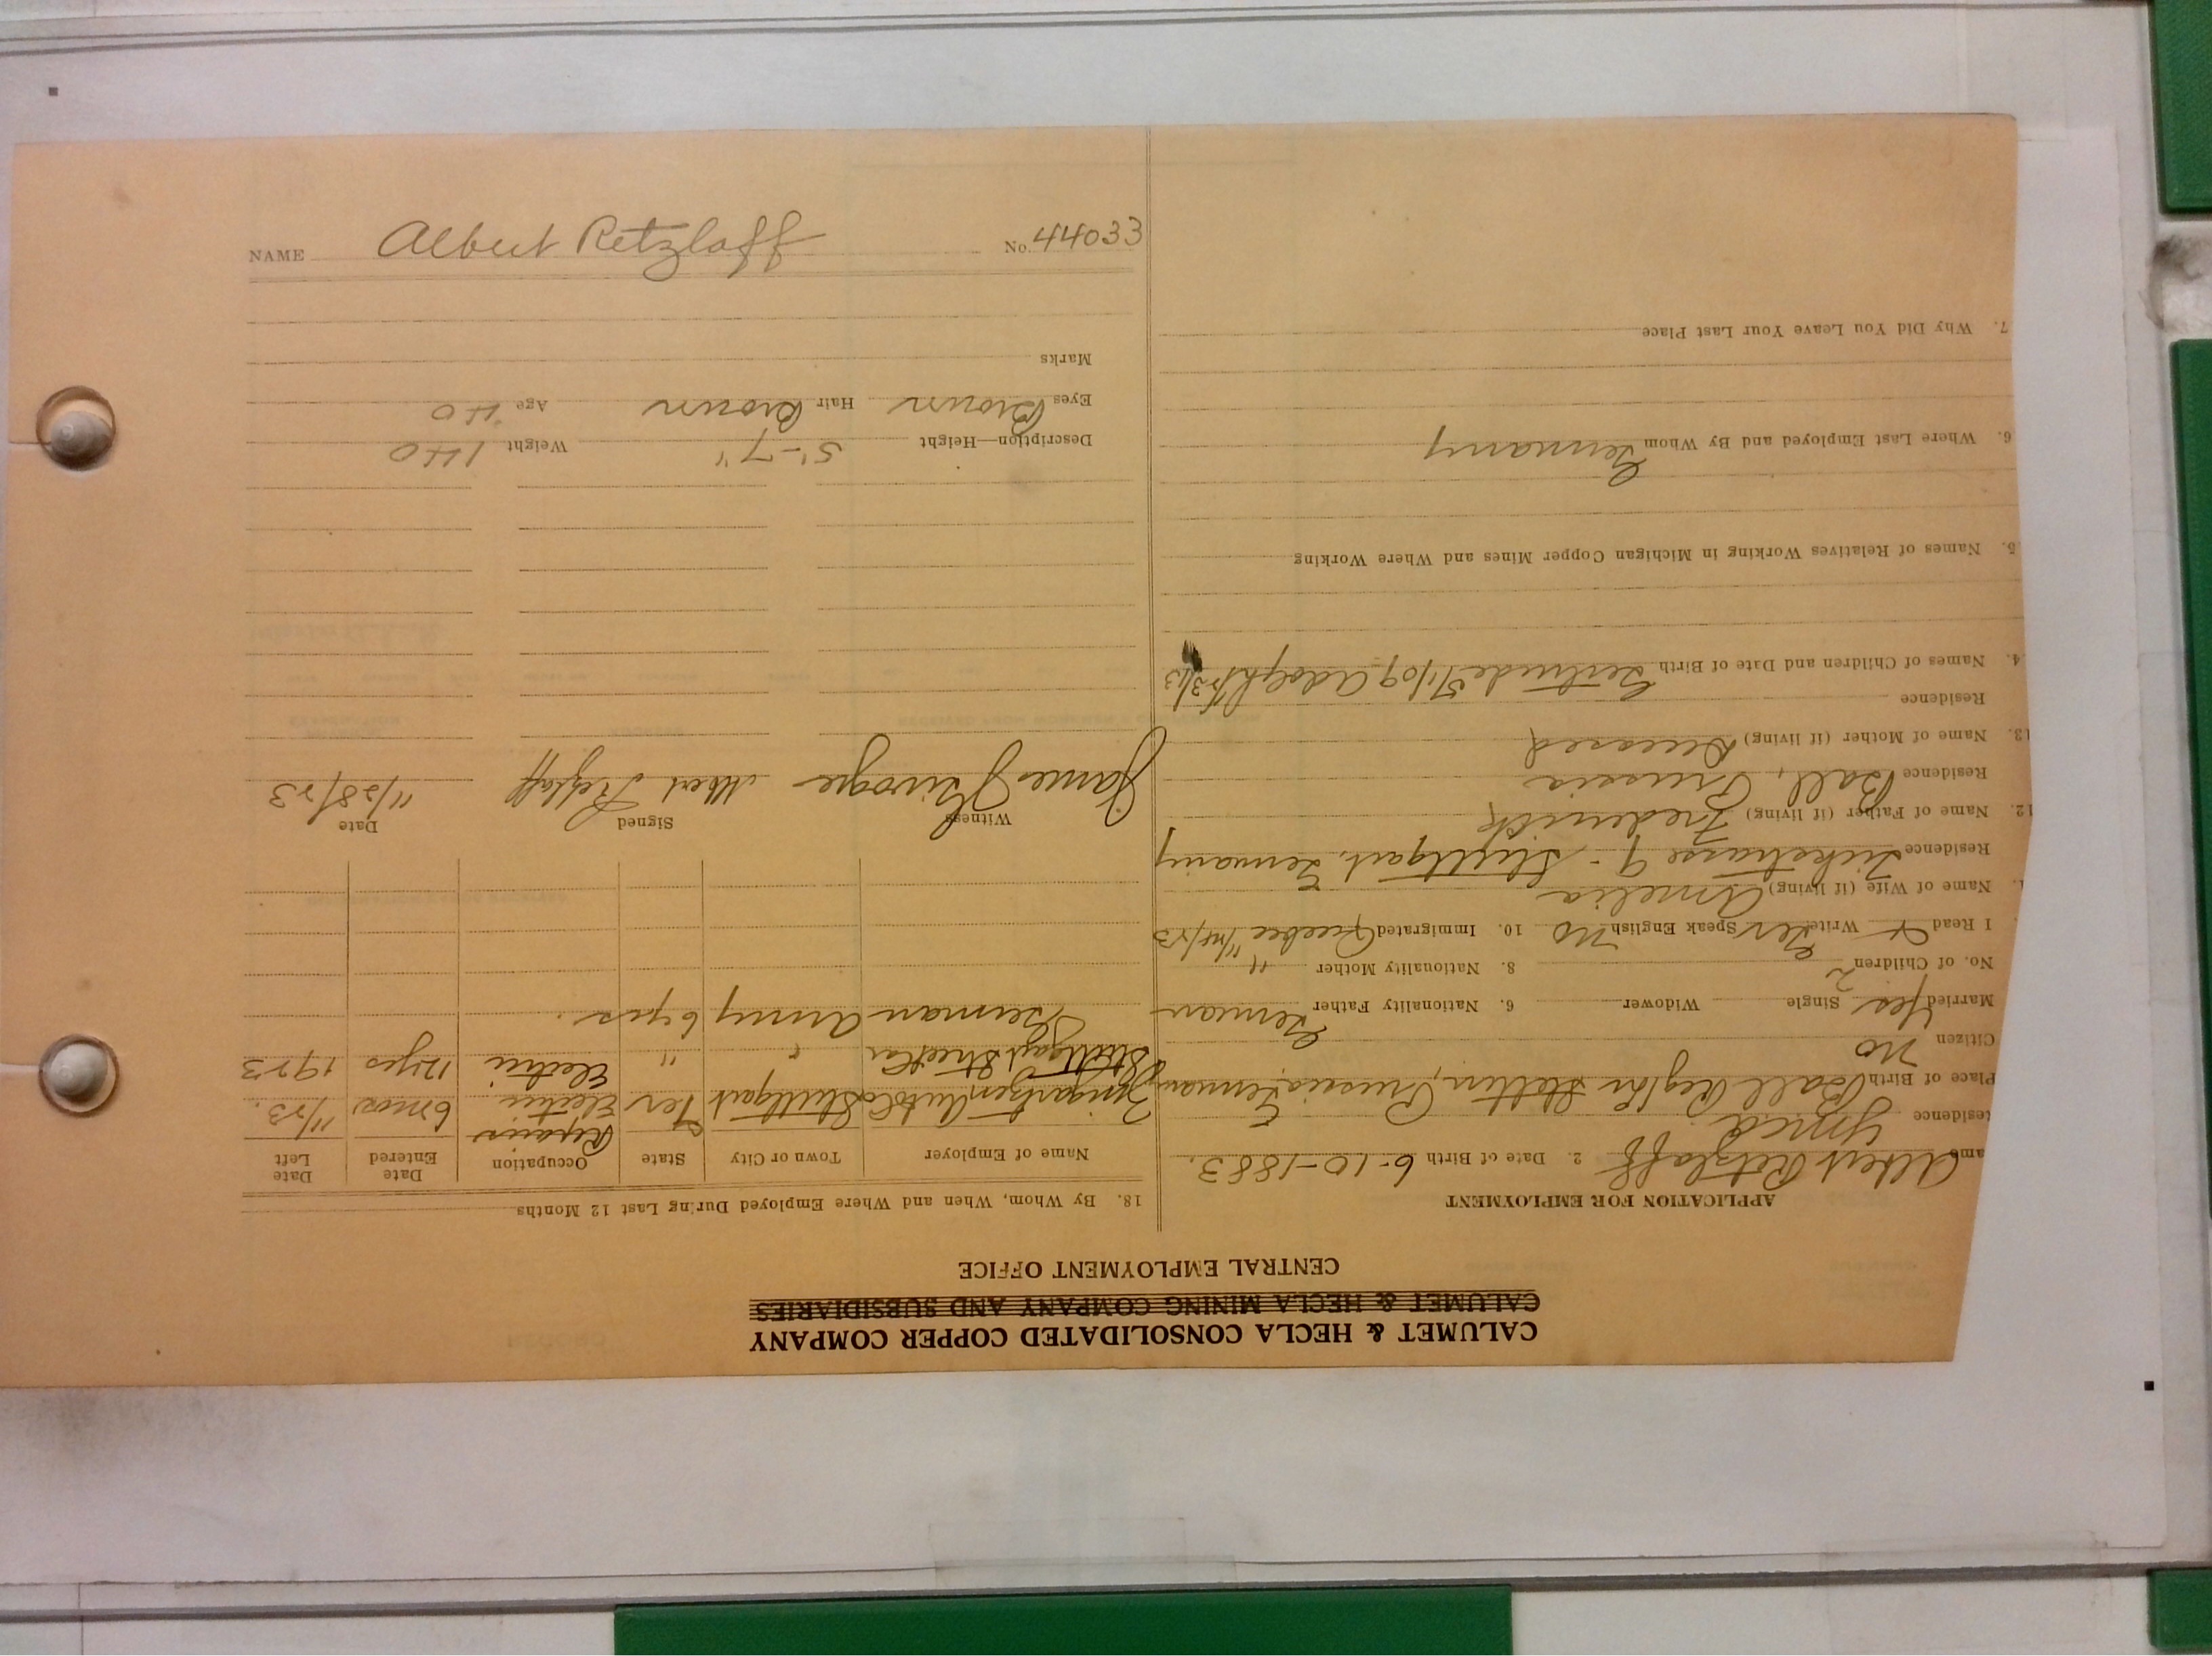 CALUMET & HECLA CONSOLIDATED COPPER COMPANY
CALUMET & HECLA MINING COMPANY AND SUBSIDIARIES
CENTRAL EMPLOYMENT OFFICE
APPLICATION FOR EMPLOYMENT
ame Albert Retzlaff 2. Date of Birth 6-10-1883.
Residence Ymca
Place of Birth Ball Stettin, Prussia, Germany
Citizen no
Married Yes Single Widower 6. Nationality Father German
No. of Children 2 8. Nationality Mother "
I Read Write Ger Speak English no 10. Immigrated Quebec
Name of Wife (if living) Amelia
Residence 9 - Stuttgart, Germany
12. Name of Father (if living) Frederick
Residence Ball, Prussia
13. Name of Mother (if living) Deceased
Residence
4. Names of Children and Date of Birth Gertrude 5/1/09 Adolph
5. Names of Relatives Working in Michigan Copper Mines and Where Working
6. Where Last Employed and By Whom Germany
7. Why Did You Leave Your Last Place
18. By Whom, When and Where Employed During Last 12 Months
Name of Employer Town or City State Occupation Date Entered Date Left
Repairs
Auto Co Stuttgart Ger Electric 6 mos 11/23.
Stuttgart Street Car " " Electric 12 yrs 1923
German Army 6 yrs.
Witness Signed Date
Albert Retzlaff 11/28/23
Description—Height 5'-7" Weight 140
Eyes Brown Hair Brown Age 40
Marks
NAME Albert Retzlaff No. 44033